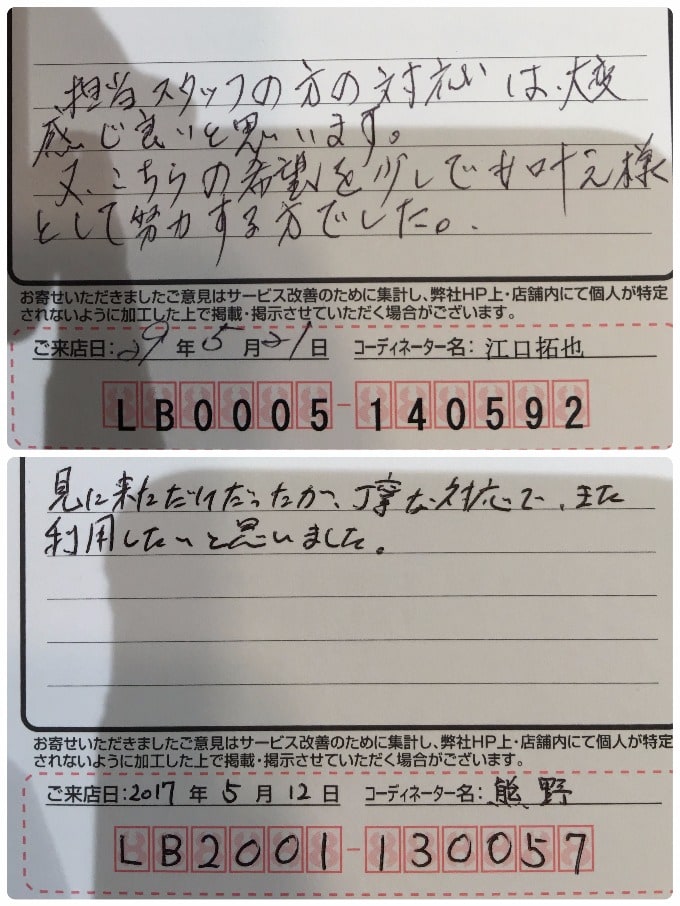 担当スタッフの方の対応は、大変
感じ良いと思います。
又、こちらの希望を少しでも叶え様
として努力する方でした。
お寄せいただきましたご意見はサービス改善のために集計し、弊社HP上・店舗内にて個人が特定
されないように加工した上で掲載・掲示させていただく場合がございます。
ご来店日:29年5月21日 コーディネーター名:江口拓也
LB0005-140592
見に来ただけだったが、丁寧な対応で、また
利用したいと思いました。
お寄せいただきましたご意見はサービス改善のために集計し、弊社HP上・店舗内にて個人が特定
されないように加工した上で掲載・掲示させていただく場合がございます。
ご来店日:2017年5月12日 コーディネーター名:熊野
LB2001-130057